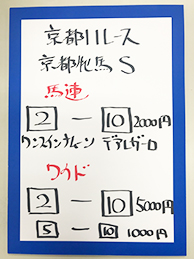 京都11レース
京都牝馬S
馬連
2 ー 10 2000円
ワンスインナムーン デアレガーロ
ワイド
2 ー 10 5000円
5 ー 10 1000円